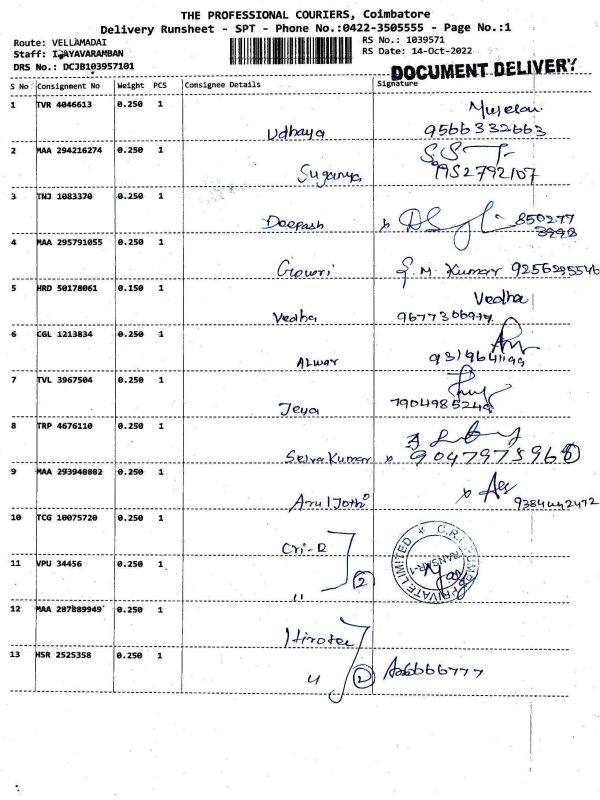 THE PROFESSIONAL COURIERS, Coimbatore
Delivery Runsheet - SPT - Phone No.:0422-3505555 - Page No.:1
Route: VELLAMADAI
RS No.: 1039571
Staff: IDAYAVARAMBAN
RS Date: 14-Oct-2022
DRS No.: DCJB103957101
DOCUMENT DELIVERY
S No Consignment No Weight PCS Consignee Details Signature
1 TVR 4046613 0.250 1
Udhaya 9566332663
2 MAA 294216274 0.250 1
Suganya 9952792107
3 TNJ 1083370 0.250 1
Deepash 850277
4 MAA 295791055 0.250 1
Gowri G.M. Kumar 9256295546
5 HRD 50178061 0.150 1
Vedha
Vedha
6 CGL 1213834 0.250 1
ALWAR
7 TVL 3967504 0.250 1
Jeya 7904985249
8 TRP 4676110 0.250 1
Selva Kumar 9047975968
9 MAA 293948802 0.250 1
Arul Jothi 9384442472
10 TCG 10075720 0.250 1
Cri-R
11 VPU 34456 0.250 1
" 2
PRIVATE LIMITED
12 MAA 287889949 0.250 1
Hirotec
13 HSR 2525358 0.250 1
" 2